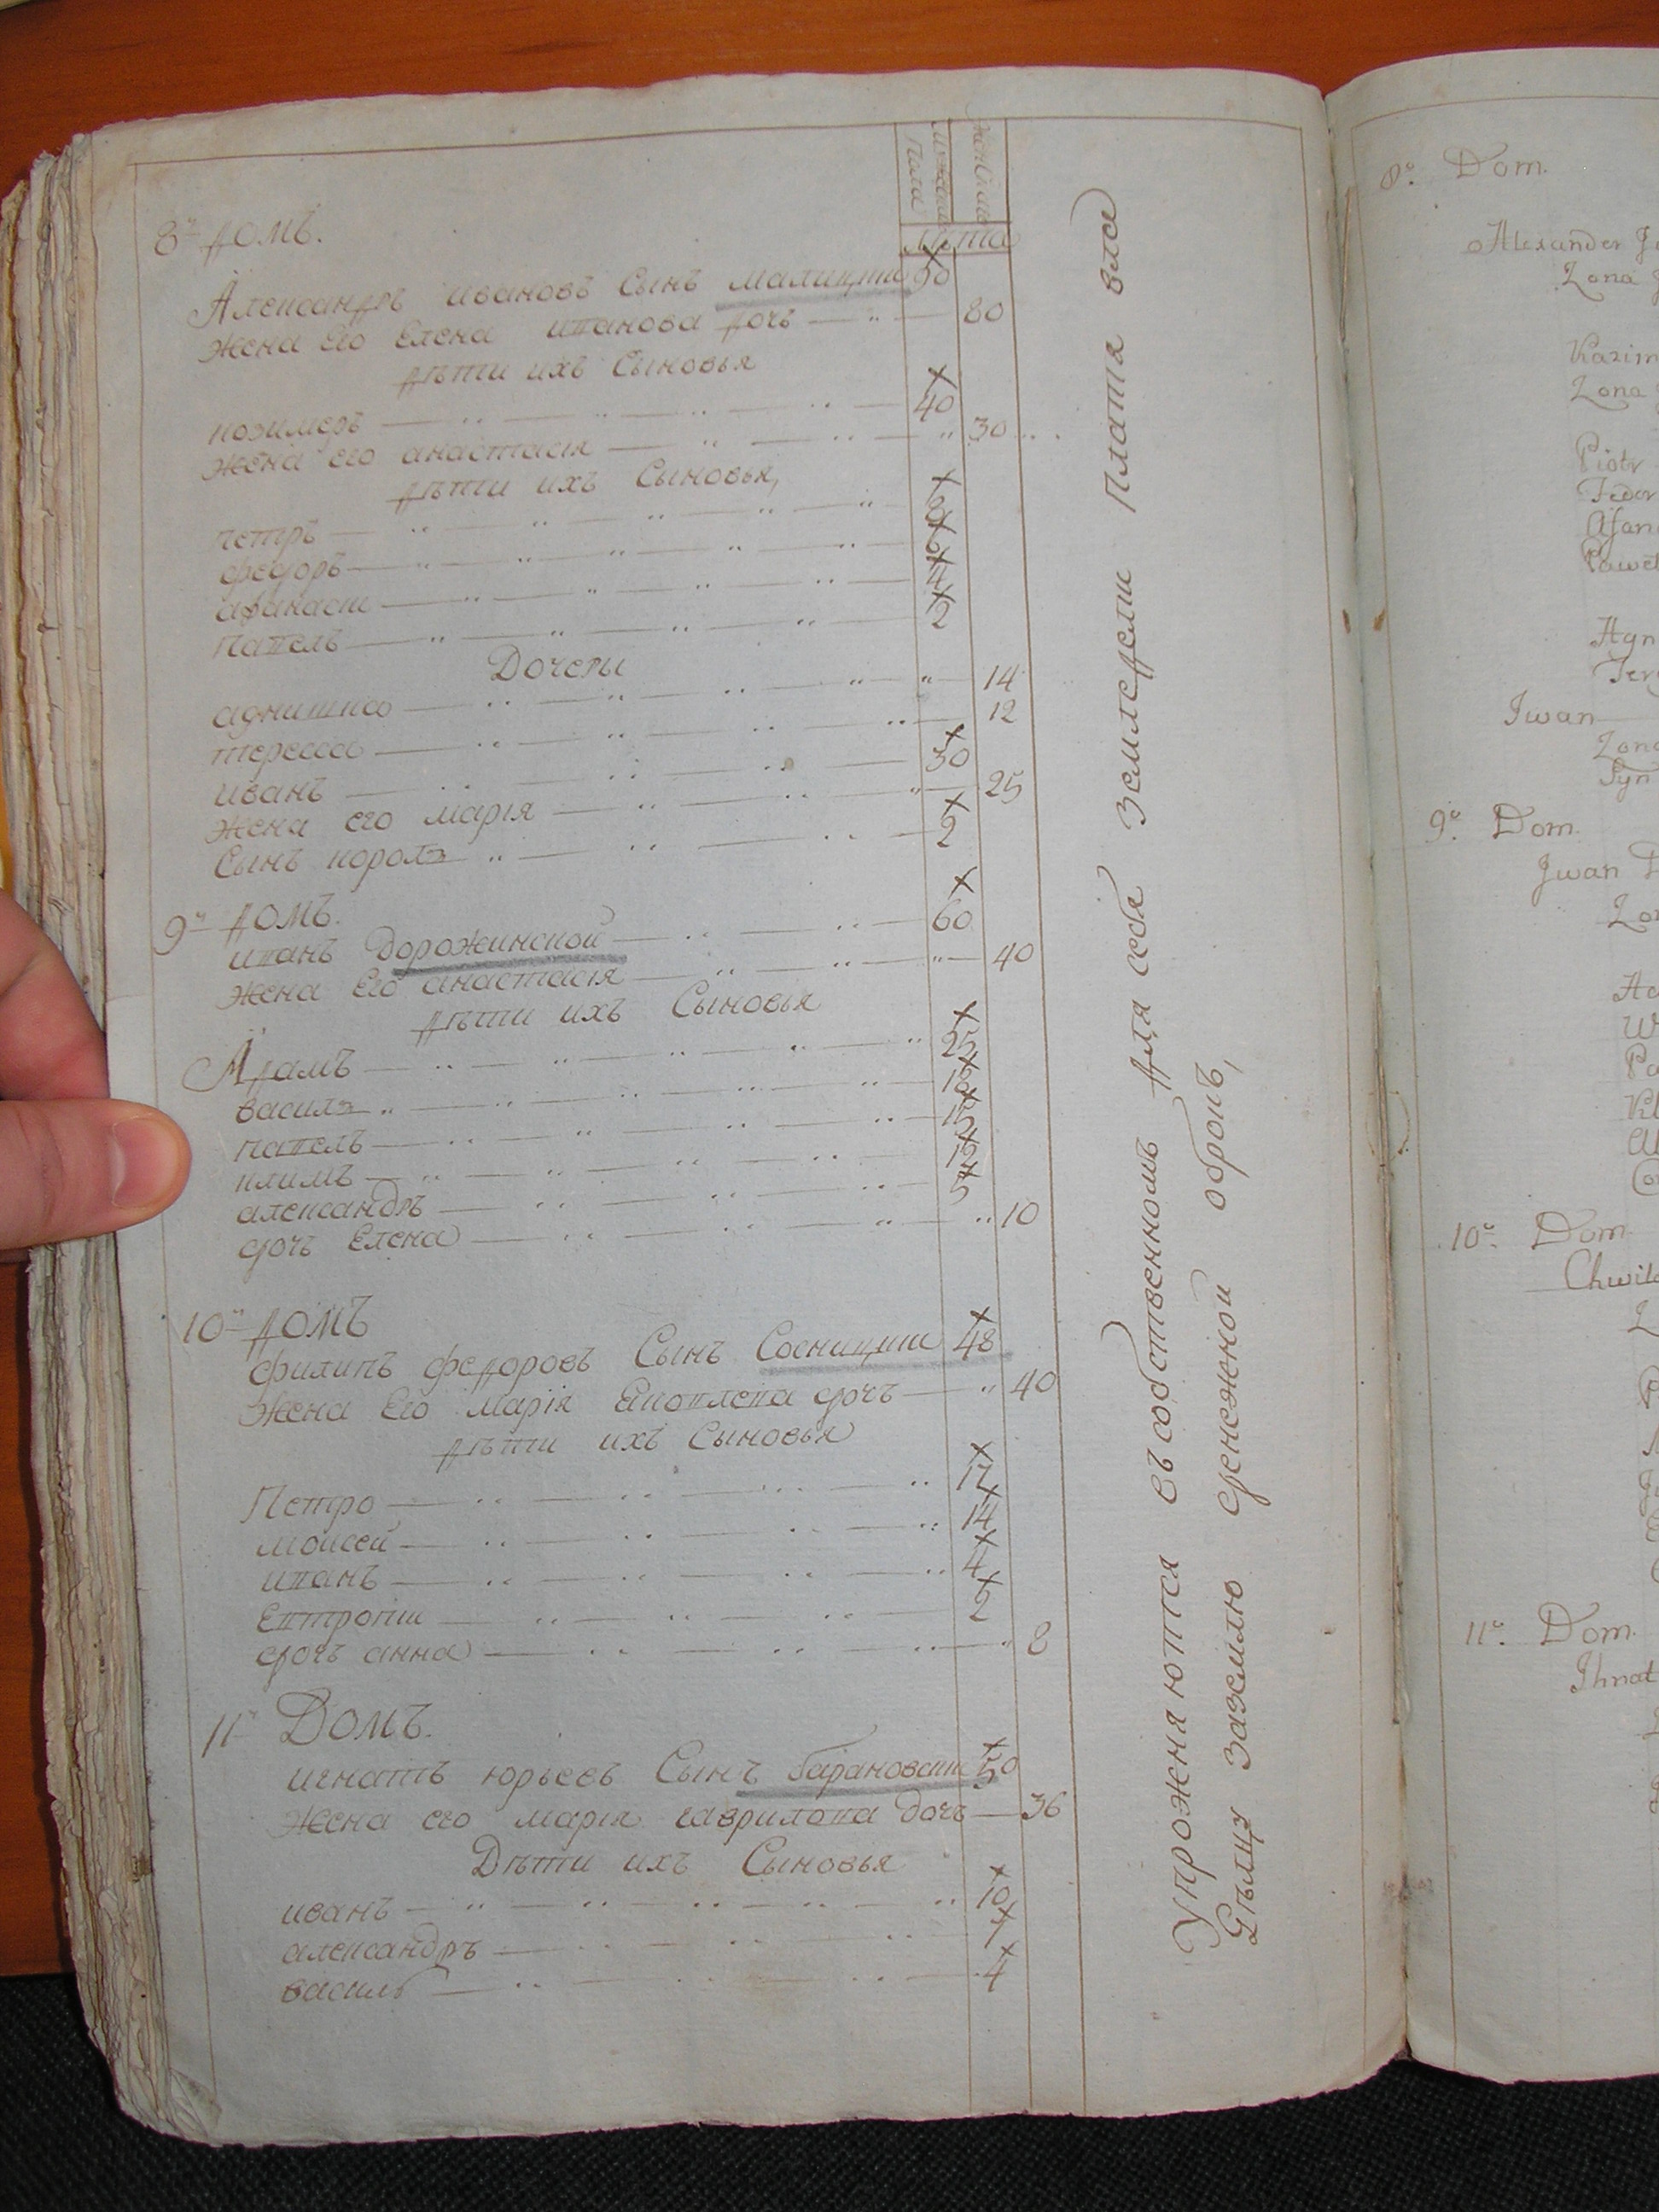 Мужска Пола
Женска
Лѣта
8й домъ.
Александръ ивановъ Сынъ малицки 90
Жена Его Елена иванова дочъ 80
дѣти ихъ Сыновья
козимеръ 40
жена его анастасія 30
дѣти ихъ Сыновья,
петръ 8
федоръ
афанаси 4
павелъ 2
Дочери
агнишка 14
тересса 12
иванъ 30
жена его марія 25
Сынъ король 2
9й домъ.
иванъ Дорожинской 60
жена Его анастасія 40
дѣти ихъ Сыновья
Адамъ 25
василь 18
павелъ 15
климъ 12
александръ 5
дочь Елена 10
10й домъ
филипъ федоровъ Сынъ Сосницки 48
Жена Его Марія Яковлева дочъ 40
дѣти ихъ Сыновья
Петро 17
моисей 14
иванъ 4
Евтропи 2
дочь анна 8
11й Домъ.
игнатъ юрьевъ Сынъ барановски 50
Жена его марія гаврилова дочъ 36
Дѣти ихъ Сыновья
иванъ 10
александръ 7
василь 4
Упрожняются въ собственномъ для себя земледели плата вла
дѣлцу заземлю денежной оброкъ,
8о. Dom.
Alexander
Żona
Kazim
Żona
Piotr
Fedor
Afan
Paweł
Agn
Ter
Jwan
Żona
Syn
9о. Dom.
Jwan
Żo
Ad
W
Pa
Kl
10о. Dom.
Chwil
11о. Dom.
Jhnat